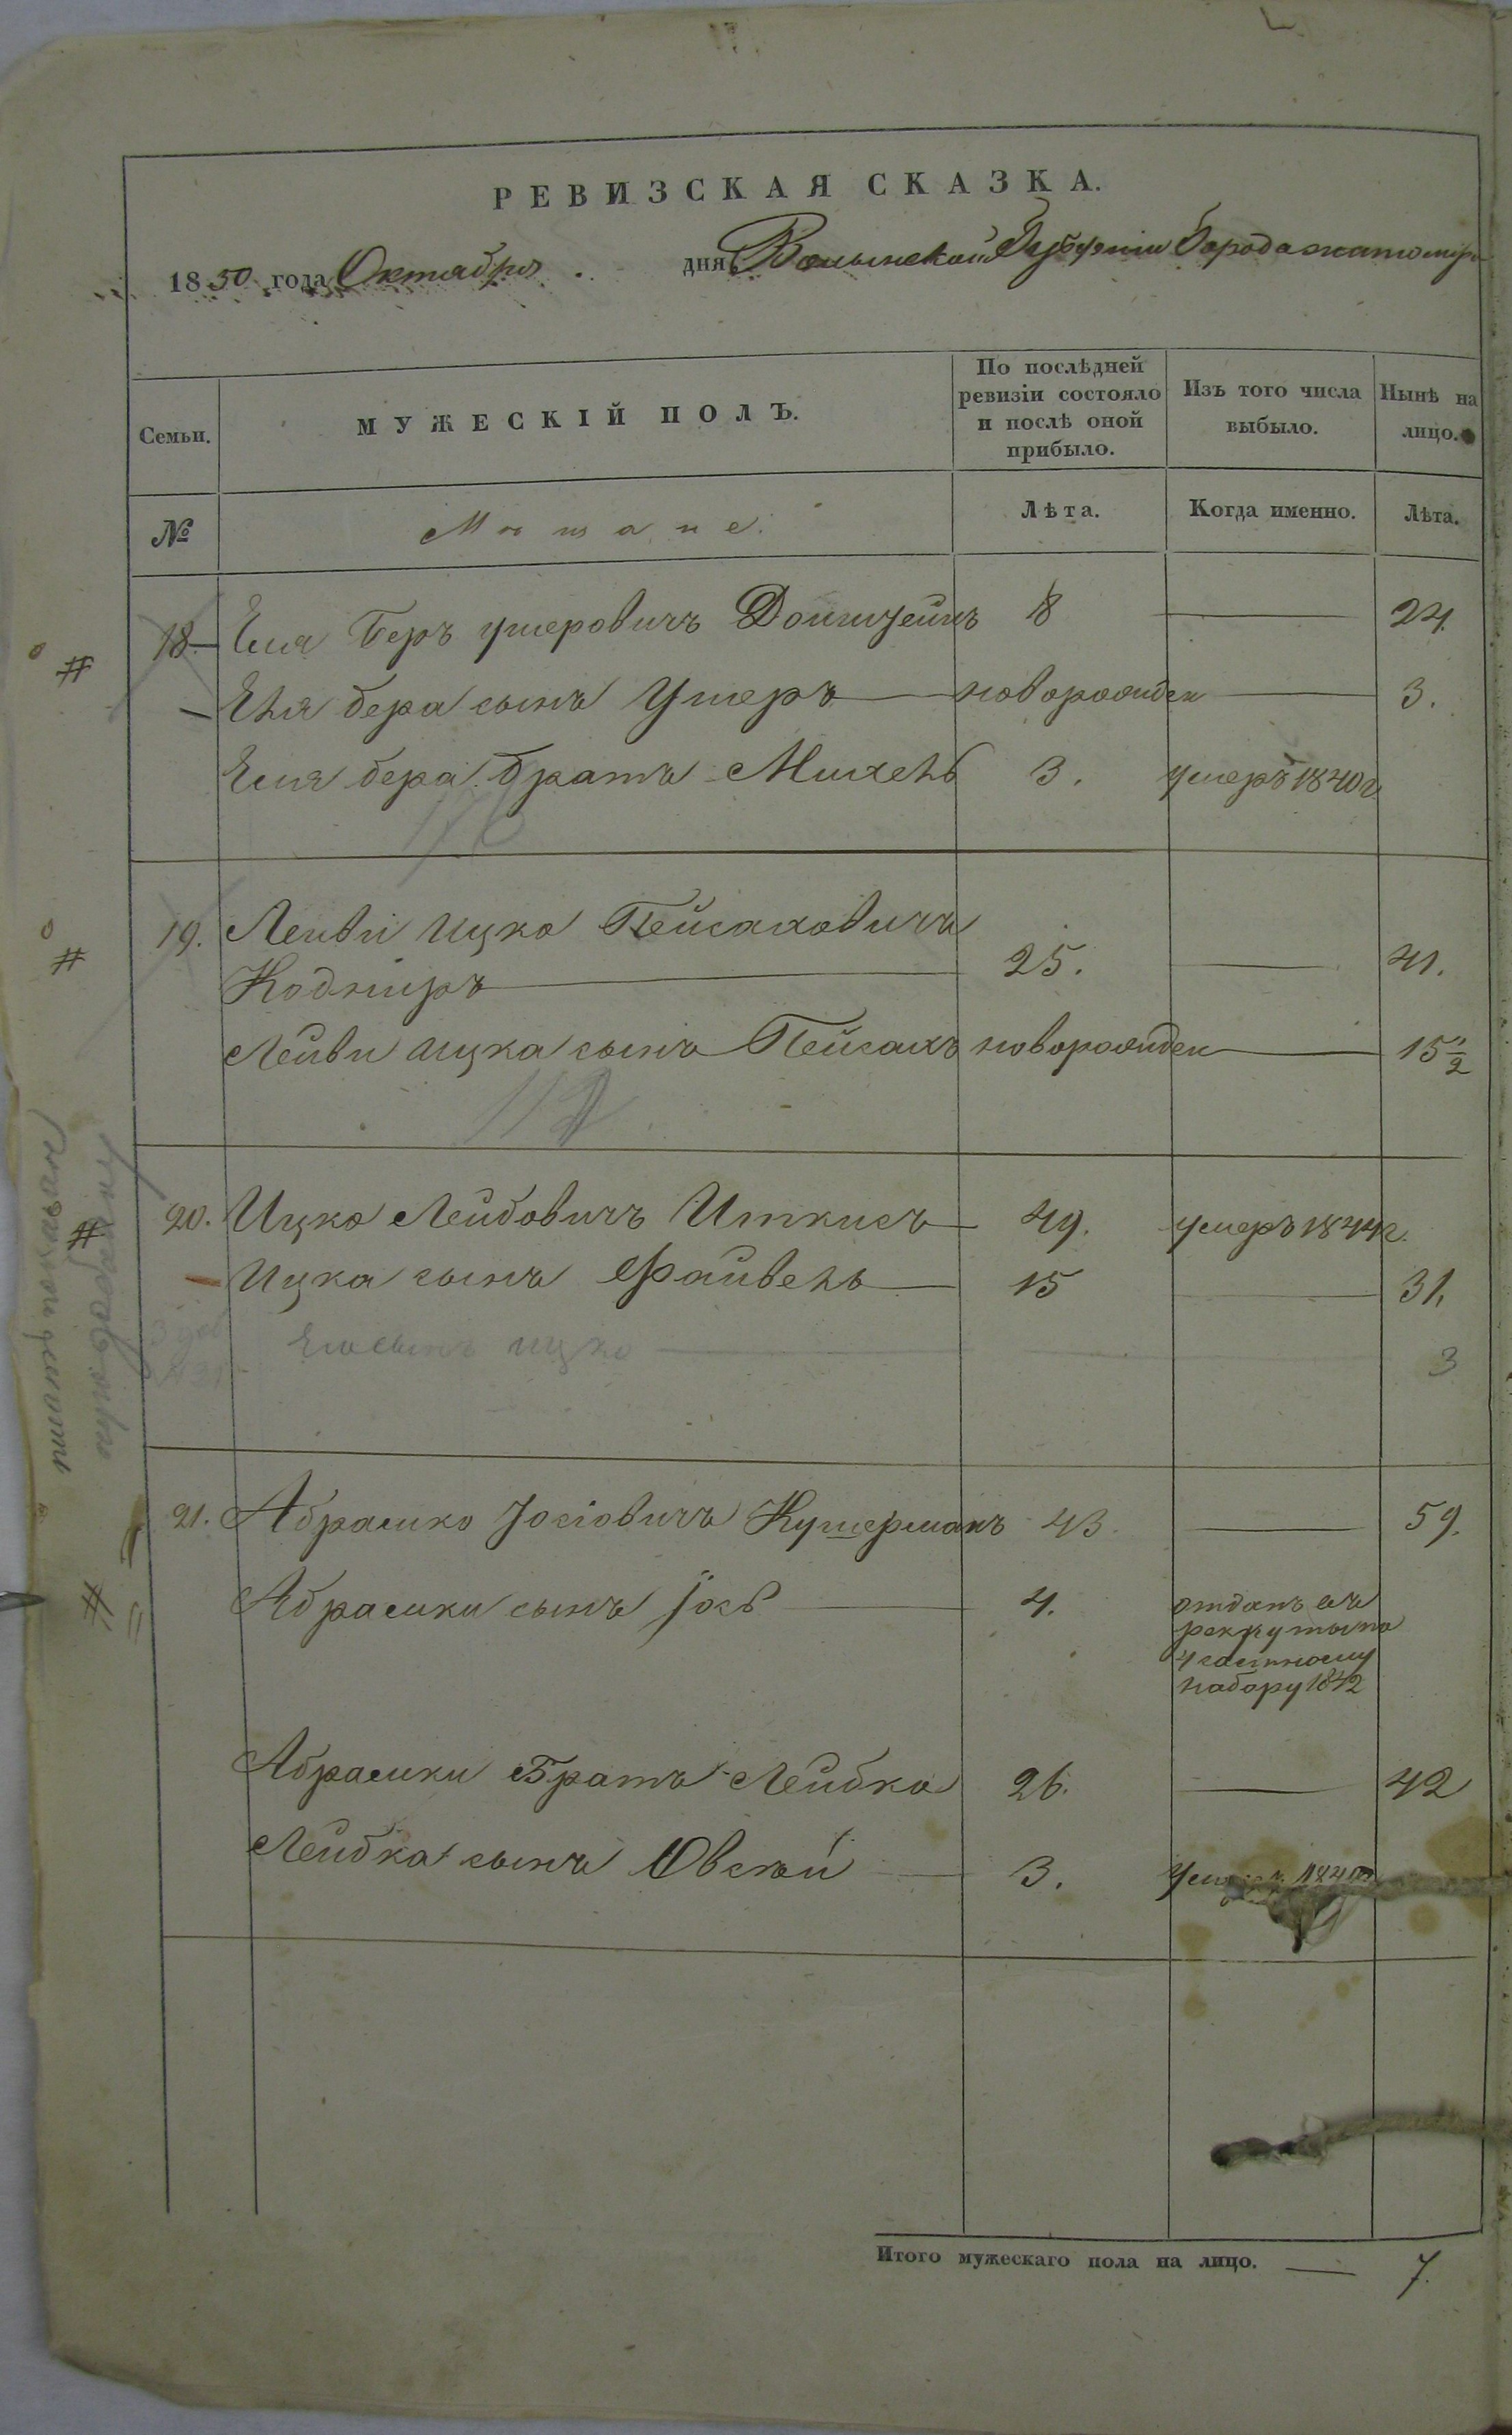 РЕВИЗСКАЯ СКАЗКА.
1850 года Октября . дня Волынской Губерніи Города житомира
Семьи.
МУЖЕСКІЙ ПОЛЪ.
По послѣдней ревизіи состояло и послѣ оной прибыло.
Изъ того числа выбыло.
Нынѣ на лицо.
№
Мѣщане.
Лѣта.
Когда именно.
Лѣта.
18. Еля Беръ Умеровичъ 8 — 24.
Еля бера сынъ Умеръ — новорожден — 3.
Еля бера братъ Михель 3. умеръ 1840г
19. Лейви Ицко Пейсаховичъ
Кодниръ — 25. — 41.
Лейви Ицка сынъ Пейсахъ новорожден — 15 1/2
112
20. Ицко Лейбовичъ Иткисъ — 49. умеръ 1844г.
Ицка сынъ Файвель — 15 — 31.
Его сынъ ицко — — 3
21. Абрамко Іосіовичъ Кушерманъ 43. — 59.
Абрамки сынъ Іосъ — 4. отданъ въ
рекруты по
частному
набору 1842
Абрамки Братъ Лейбко 26. — 42
Лейбка сынъ Овсѣй — 3.
Итого мужескаго пола на лицо. — 7.